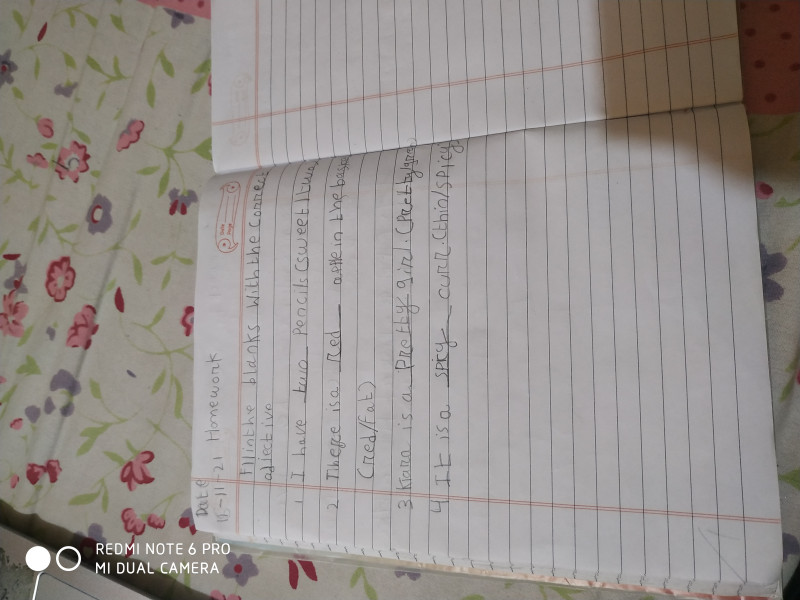 Date
15-11-21 Homework
Fill in the blanks With the Correct
adjective
1 I have two Pencils (sweet/two)
2 There is a Red in the
(red/fat)
3 is a Pretty girl. (Pretty/
4 It is a spicy curr. (thin/spicy
REDMI NOTE 6 PRO
MI DUAL CAMERA